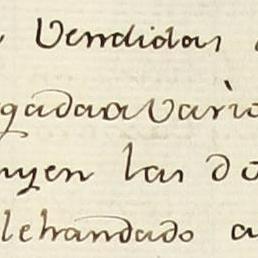 Vendidas
gada a Vario
uyen las do
lehan dado a